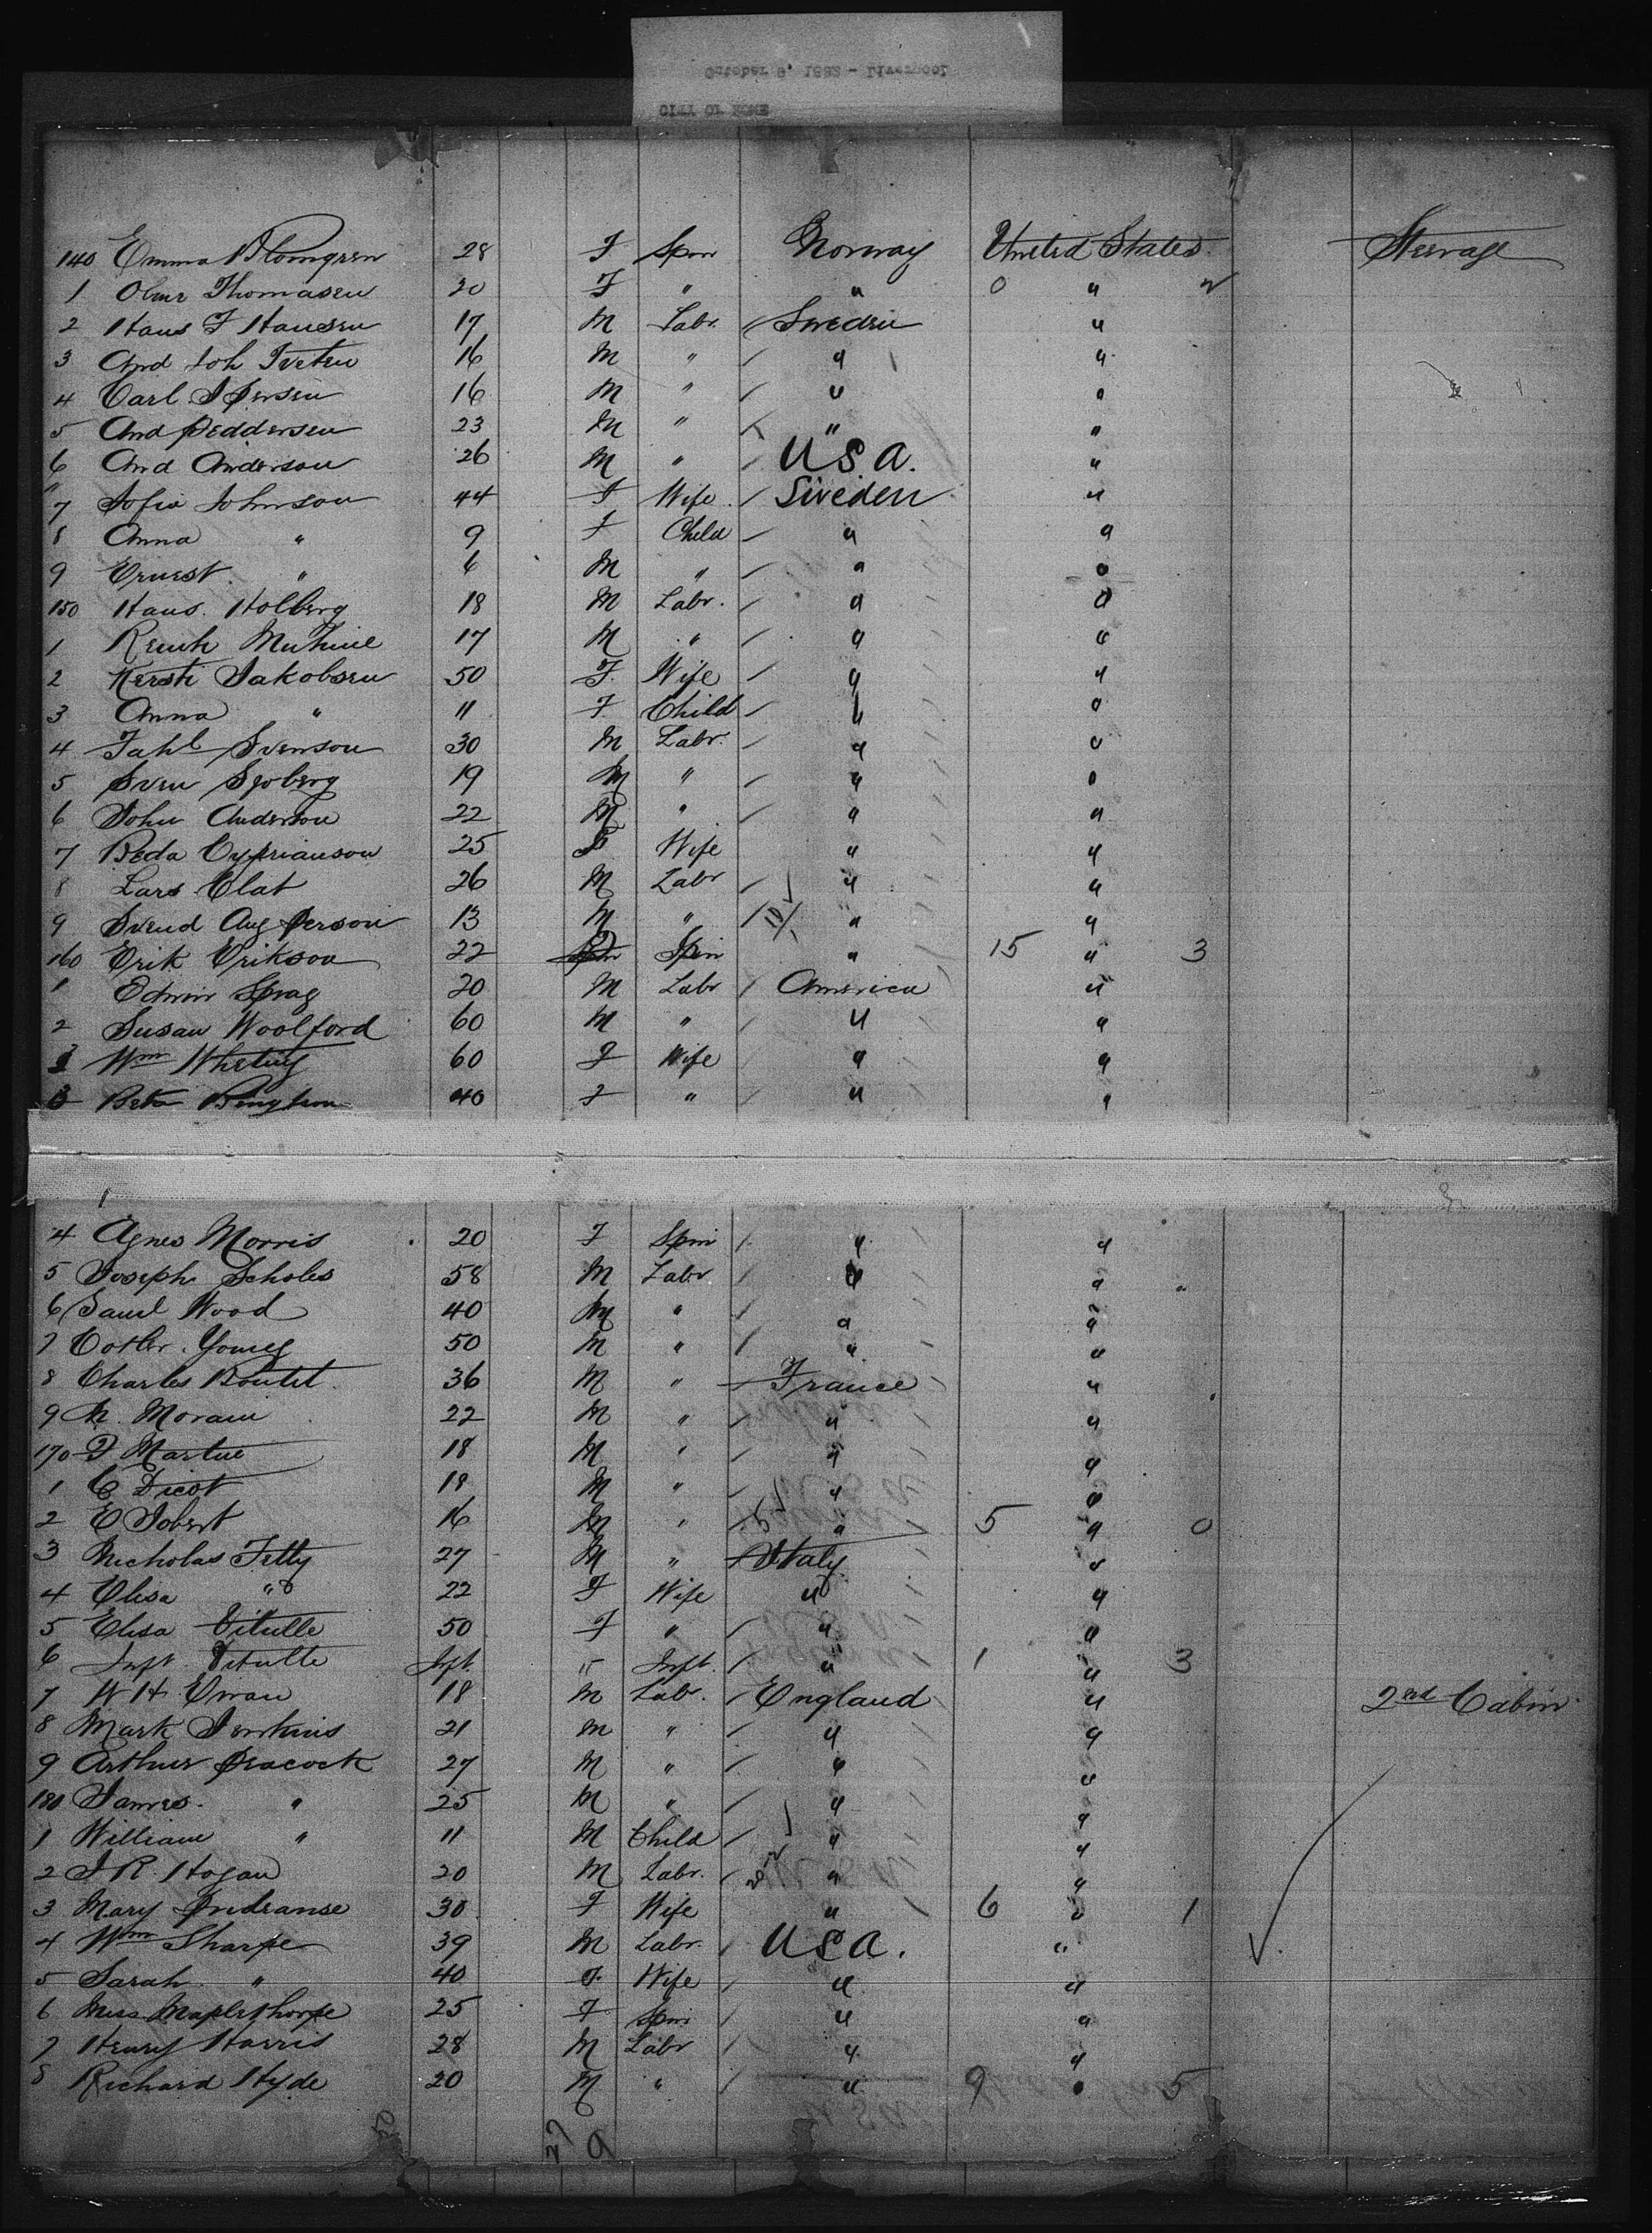 October 9, 1883 - Liverpool
CITY OF ROME
140 Emma Blomgren 28 F Spin Norway United States Steerage
1 Thomasen 20 F " " 0 " 2
2 Hans F Hansen 17 M Labr. Sweden "
3 And Joh 16 M " " "
4 Carl Ipersen 16 M " " "
5 And Peddersen 23 M " " "
6 And Anderson 26 M " U S A. "
7 Sofia Johnson 44 F Wife Sweden "
8 Anna " 9 F Child " "
9 Ernest " 6 M " " "
150 Hans Holberg 18 M Labr. " "
1 17 M " " "
2 Kersti Jakobsen 50 F. Wife " "
3 Anna " 11 F Child " "
4 Svenson 30 M Labr. " "
5 Sven Sjoberg 19 M " " "
6 John Anderson 22 M " " "
7 Beda Cyprianson 25 F Wife " "
8 Lars Clat 26 M Labr " "
9 Svend Aug Person 13 M " " "
160 Erik Erikson 22 Spin " 15 " 3
1 Edwin Sprag 20 M Labr America "
2 Susan Woolford 60 M " " "
3 Wm Whiting 60 F Wife " "
3 Beta 40 F " " "
4 Agnes Morris 20 F Spin " "
5 Joseph Scholes 58 M Labr " "
6 Saml Wood 40 M " " "
7 Young 50 M " " "
8 Charles Boutet 36 M " France "
9 M. 22 M " " "
170 18 M " " "
1 C Dicot 18 M " " "
2 E Jobert 16 M " " 5 " 0
3 Nicholas 27 M " Italy "
4 Elisa " 22 F Wife " "
5 Elisa Vitulle 50 F " " "
6 Inft Vitulle Inft. " Inft. " 1 " 3
7 W H 18 M Labr. England " 2nd Cabin
8 Mark Jenkins 21 M " " "
9 Arthur Peacock 27 M " " "
180 James " 25 M " " "
1 William " 11 M Child " "
2 J R Hogan 20 M Labr. " "
3 Mary 30 F Wife " 6 " 1
4 Wm Sharpe 39 M Labr. U S A. "
5 Sarah " 40 F. Wife " "
6 Miss Maplethorpe 25 F Spin " "
7 Henry Harris 28 M Labr " "
8 Richard Hyde 20 M " " 9 " 5